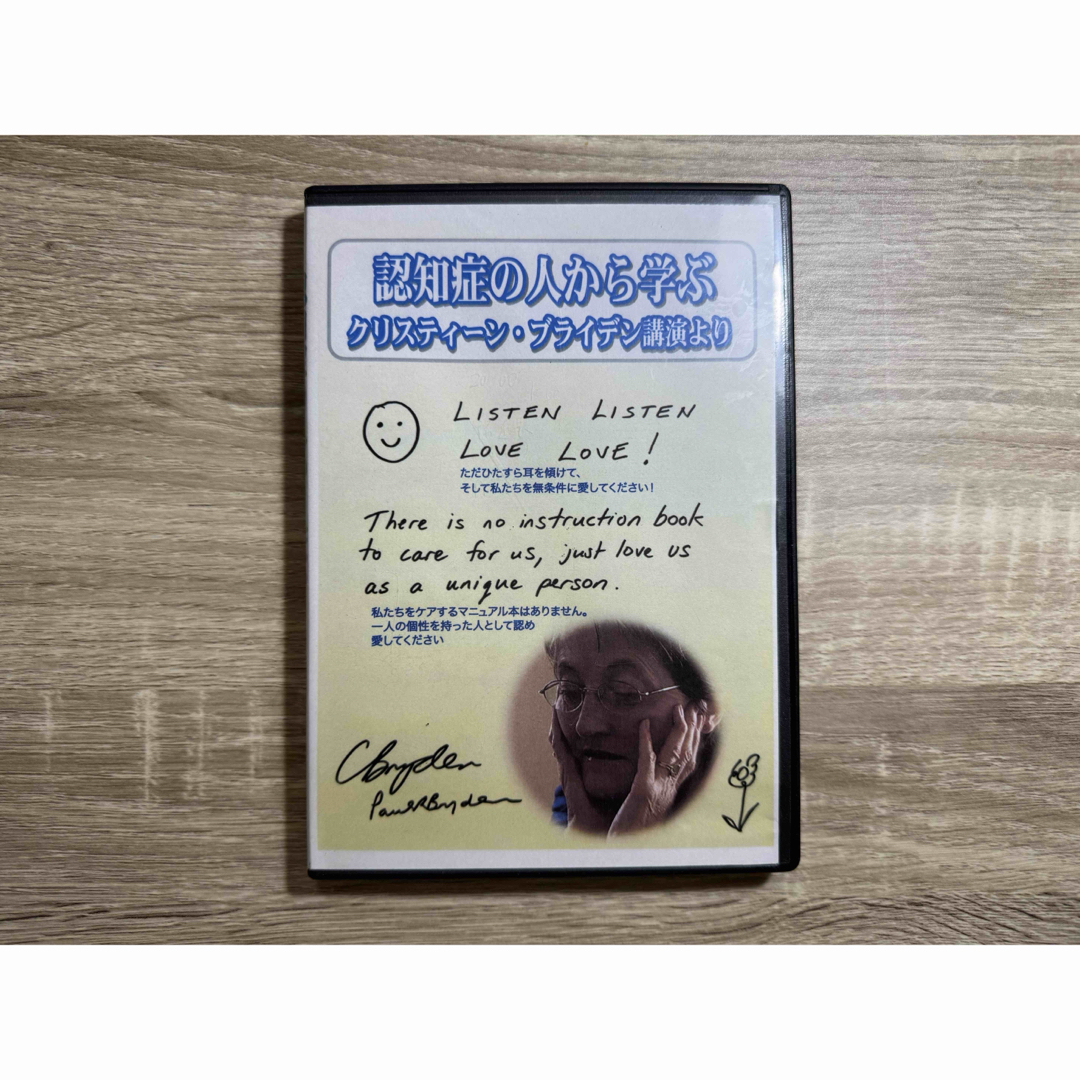 認知症の人から学ぶ
クリスティーン・ブライデン講演より
LISTEN LISTEN
LOVE LOVE!
ただひたすら耳を傾けて、
そして私たちを無条件に愛してください!
There is no instruction book
to care for us, just love us
as a unique person.
私たちをケアするマニュアル本はありません。
一人の個性を持った人として認め
愛してください
CBryden
Paul R Bryden